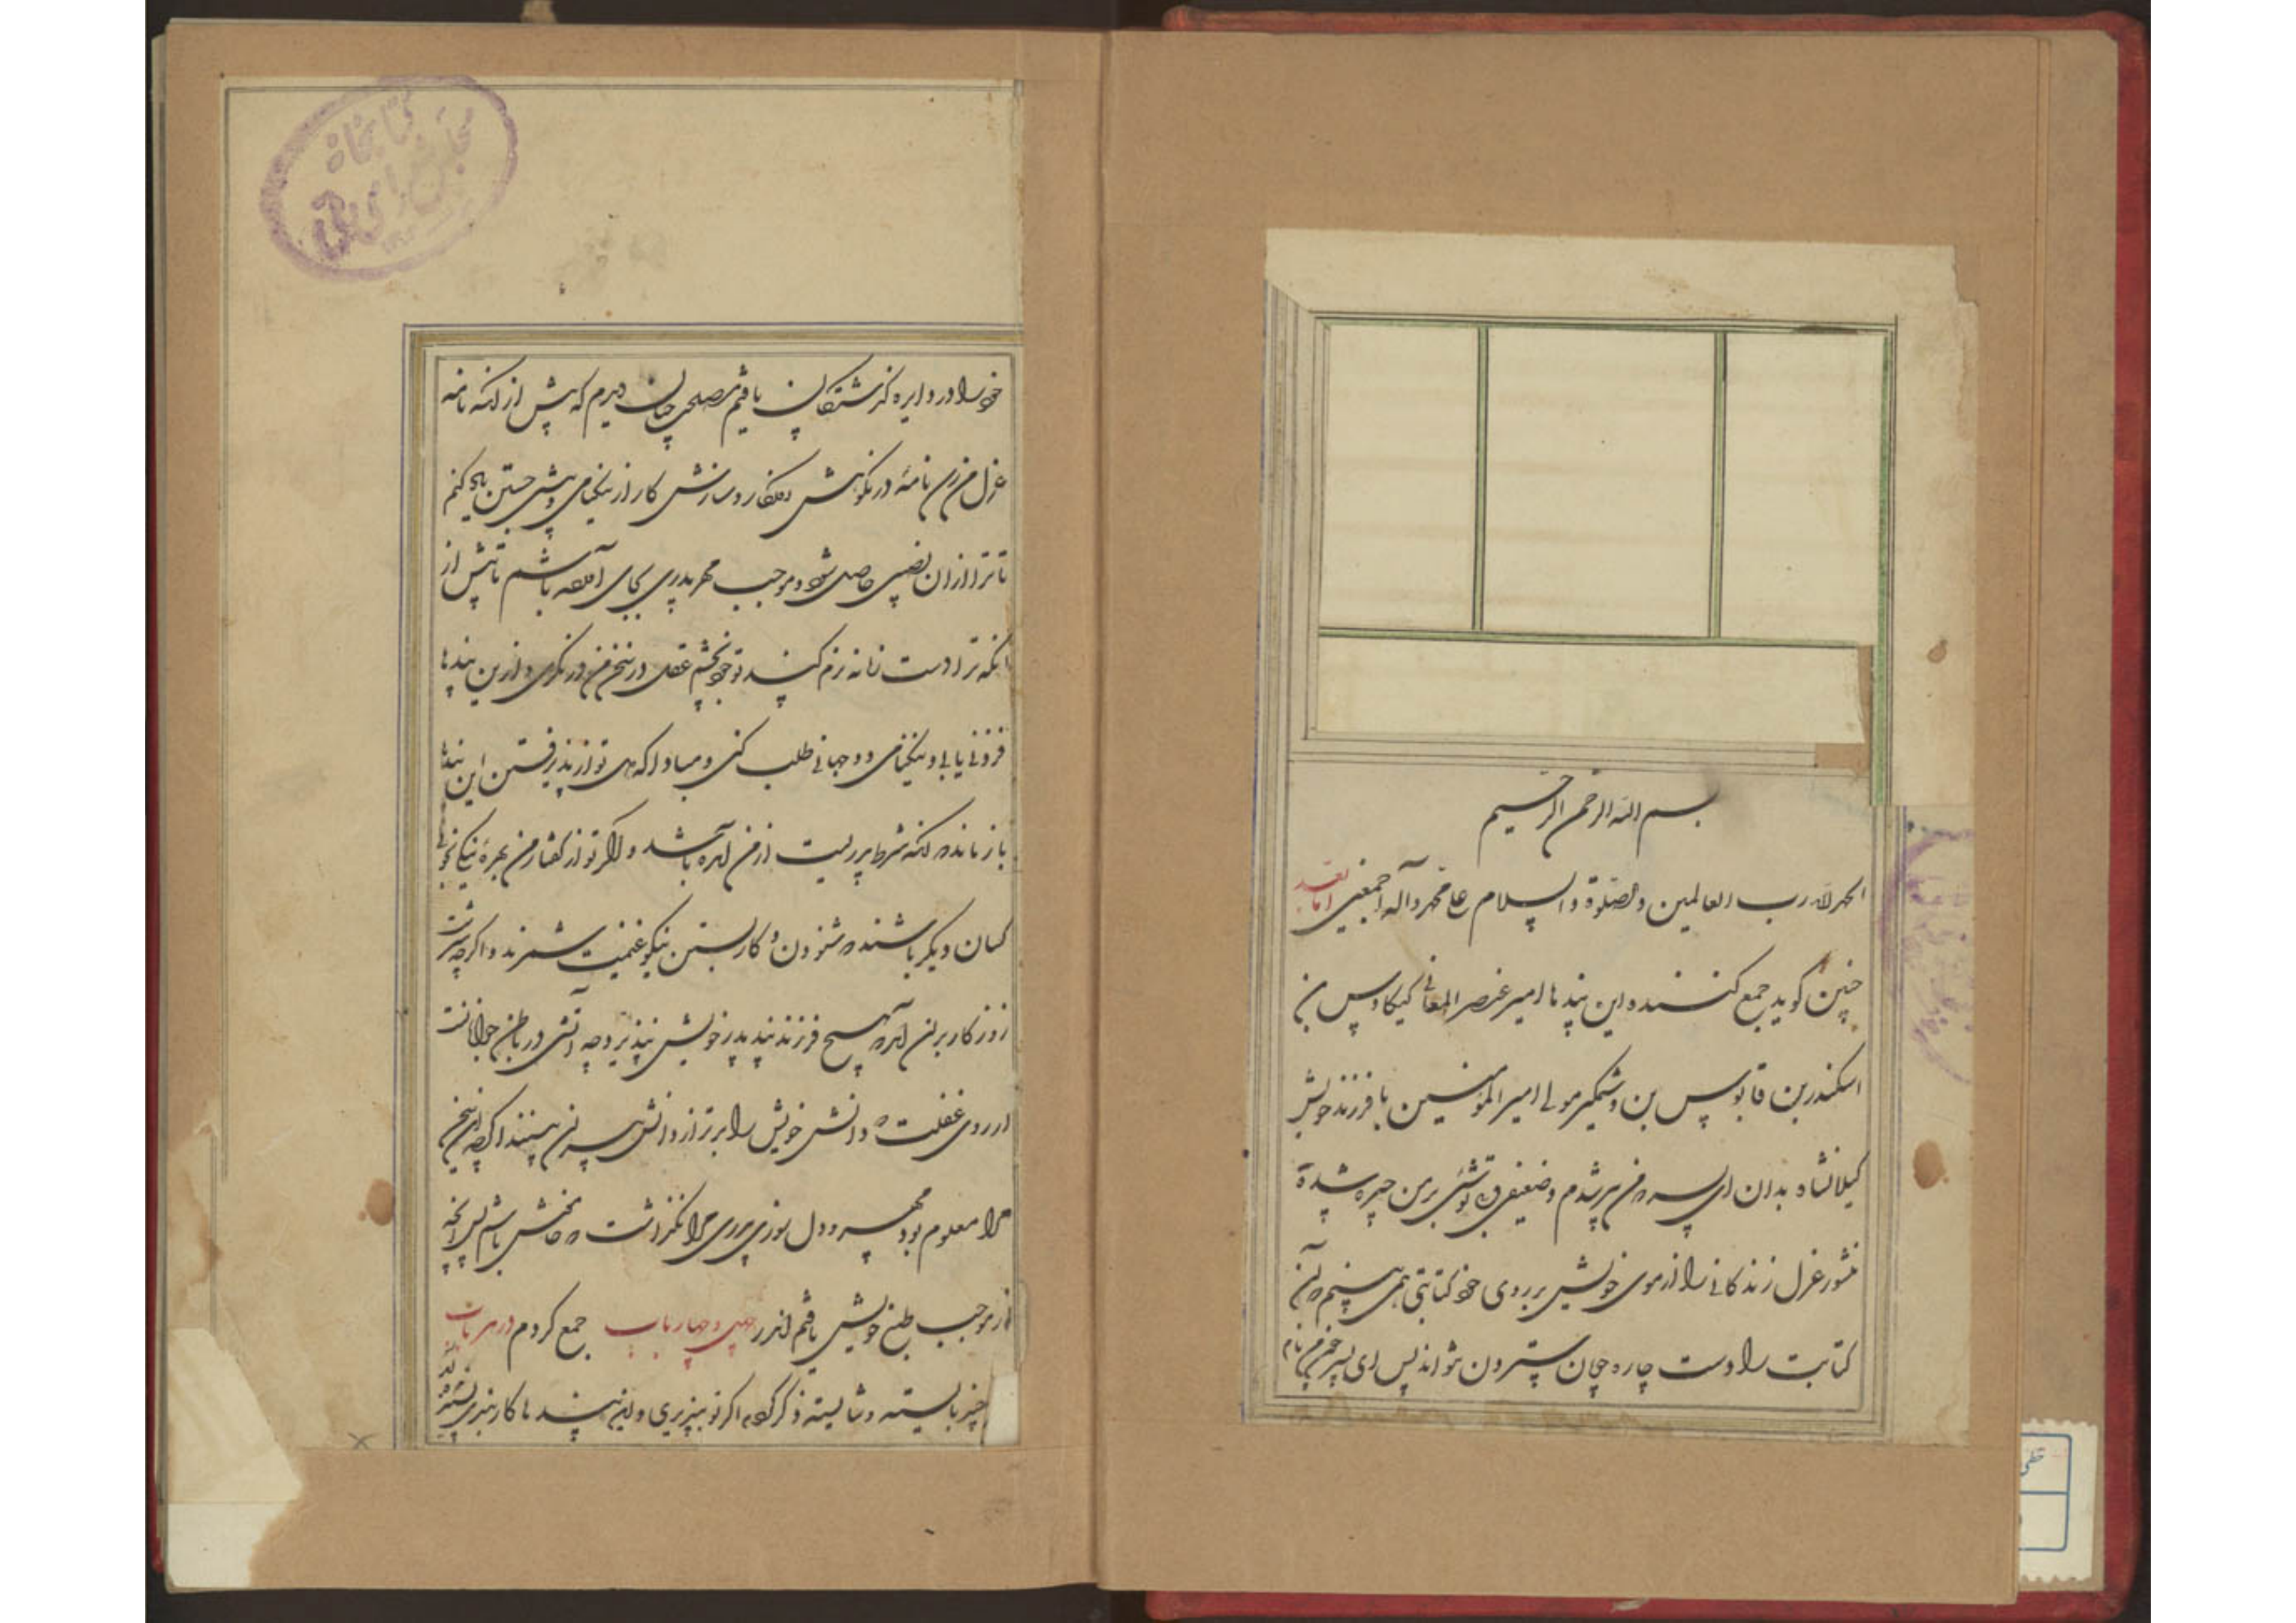 بسم الله الرحمن الرحیم
الحمد لله رب العالمین والصلوة والسلام علی محمد وآله اجمعین اما بعد
چنین گوید جمع کننده این پندها امیر عنصر المعالی کیکاوس بن
اسکندر بن قابوس بن وشمگیر مولی امیر المؤمنین با فرزند خویش
گیلانشاه بدان ای پسر که من پیر شدم و ضعیفی و بی توشی بر من چیره شد و
منشور عزل زندگانی را از موی خویش بر روی خود کتابتی همی بینم که این
کتابت را دست چاره جویان ستردن نتواند پس ای پسر چون من نام
خود را در دایره گذشتگان یافتم مصلحت چنان دیدم که پیش از آنکه نامه
عزل من رسد نامه در نکوهش روزگار و سازش کار از نیکنامی و بیشی جستن یاد کنم
تا ترا از ان نصیبی حاصل شود و موجب مهر پدری بجای آمده باشم تا پیش از
انکه ترا دست زمانه نرم کند تو خود بچشم عقل در سخن من در نگری و ازین پندها
فزونی یابی و نیکنامی دو جهانی طلب کنی و مبادا که دل تو از پذیرفتن این پندها
باز ماند که آنکه شرط پدریست از من آمده باشد و اگر تو از گفتار من بهره نیکی نجوئی
کسان دیگر باشند که شنودن و کار بستن نیکو غنیمت شمرند و اگرچه سرشت
روزگار بران آمد که هیچ فرزند پند پدر خویش نپذیرد چه آتشی در باطن جوانانست
از روی غفلت که دانش خویش را برتر از دانش پیران بینند اگرچه این سخن
مرا معلوم بود مهر و دل سوزی پدری مرا نگذاشت که خامش باشم پس آنچه
از موجب طبع خویش یافتم اندر چهل و چهار باب جمع کردم در هر باب
چیز بایسته و شایسته ذکر کرده اگر تو بپذیری و این پندها کار بندی
کتابخانه
مجلس شورای ملی